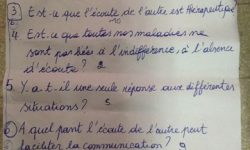 3) Est-ce que l'écoute de l'autre est thérapeutique
4. Est-ce que toutes nos maladies ne
sont pas liées à l'indifférence, à l'absence
d'écoute ?
5. Y a-t-il une seule réponse aux différentes
situations ?
6) A quel point l'écoute de l'autre peut
faciliter la communication ?